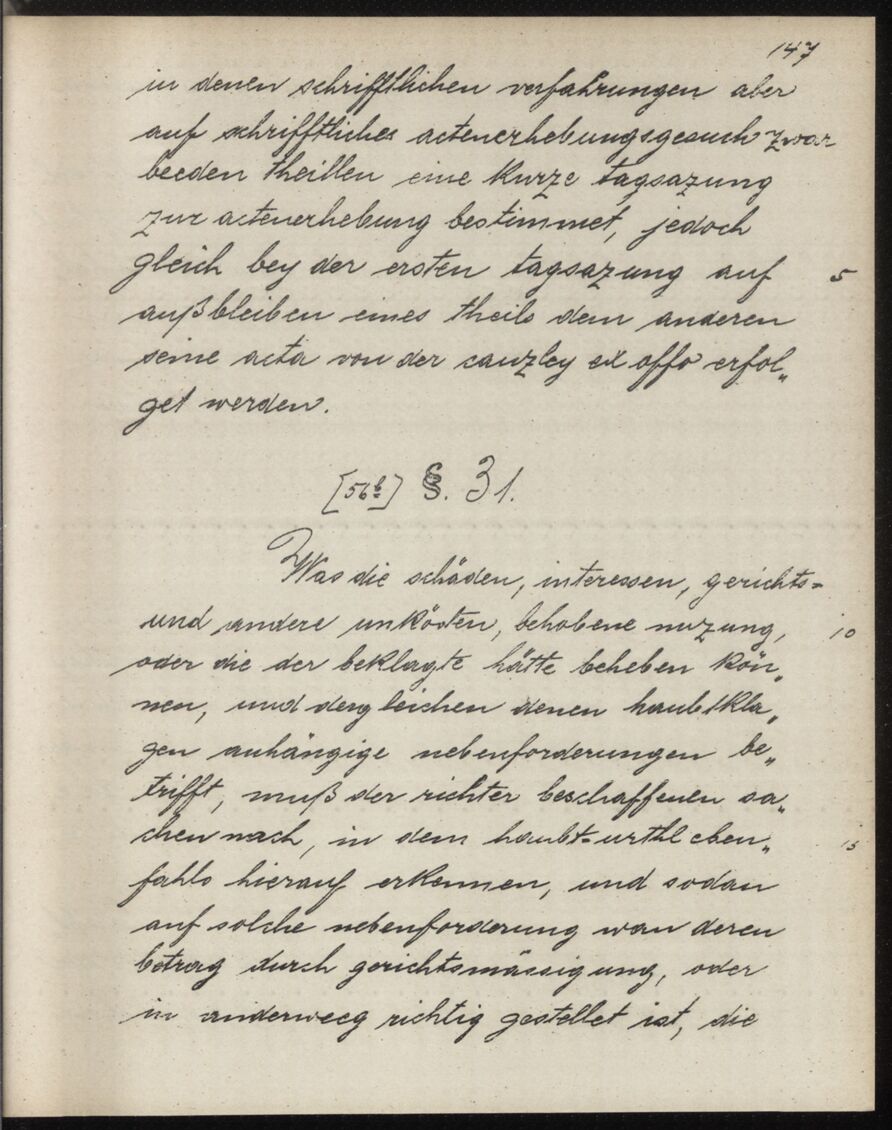 147
in denen schrifftlichen verfahrungen aber
auf schrifftliches actenerhebungsgesuch zwar
beeden theillen eine kurze tagsazung
zur actenerhebung bestimmet, jedoch
gleich bey der ersten tagsazung auf 5
außbleiben eines theils dem anderen
seine acta von der canzley ex offo erfol„
get werden.
[56b] §. 31.
Was die schäden, interessen, gerichts=
und andere unkösten, behobene nuzung, 10
oder die der beklagte hätte beheben kön„
nen, und dergleichen denen haubtkla„
gen anhängige nebenforderungen be„
trifft, muß der richter beschaffenen sa„
chen nach, in dem haubt=urthl eben„ 15
fahls hierauf erkennen, und sodan
auf solche nebenforderung wan deren
betrag durch gerichtsmässigung, oder
in anderweeg richtig gestellet ist, die